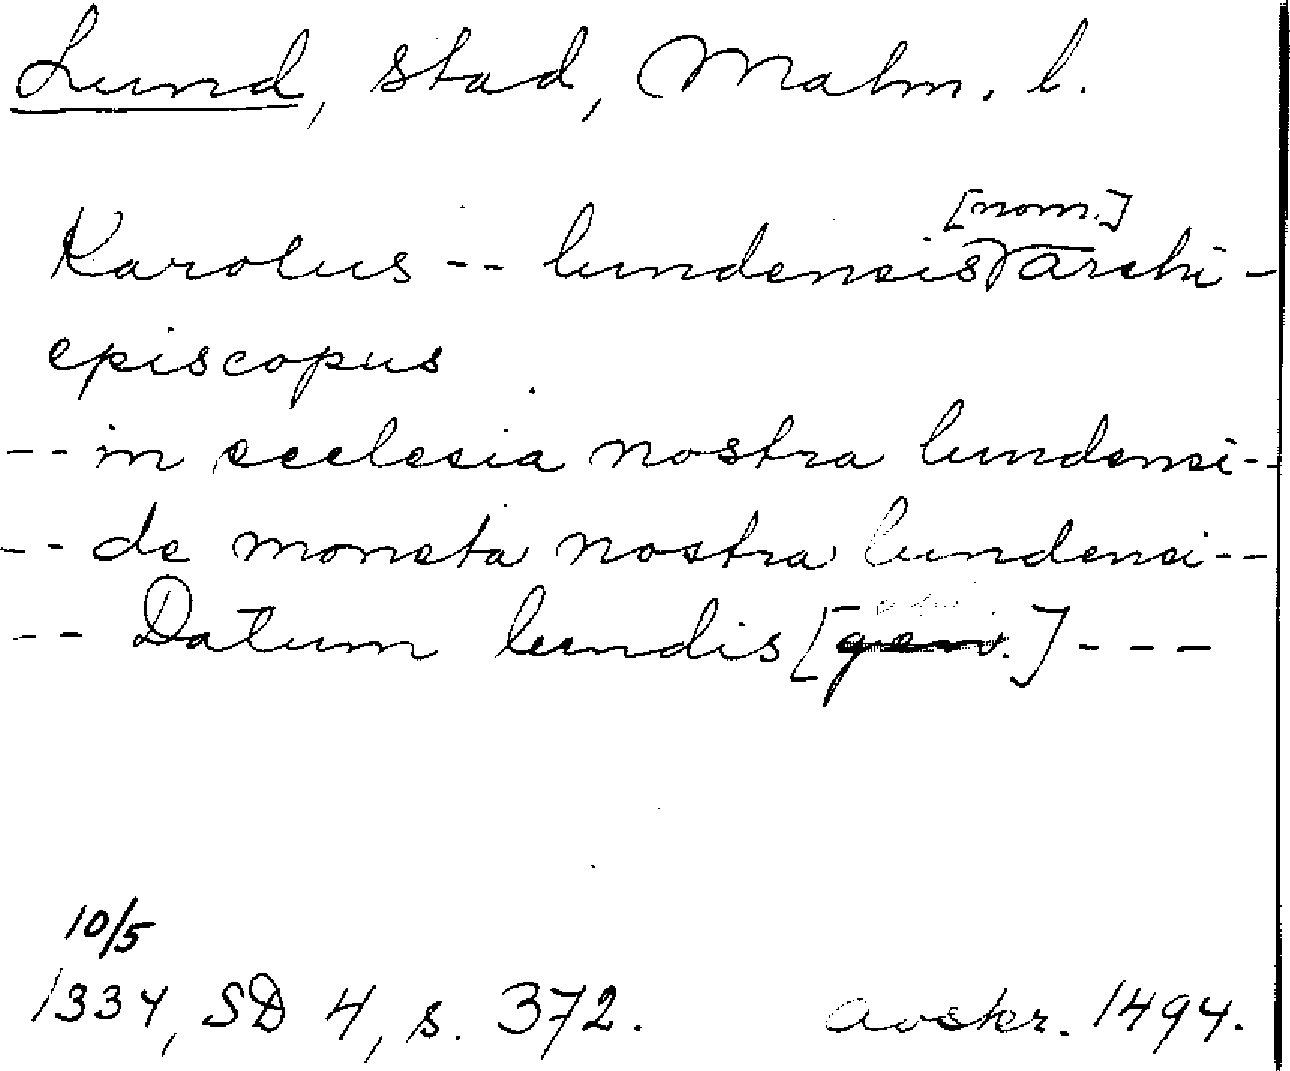 Lund, stad, Malm. l.
[nom.]
Karolus -- lundensis archi-
episcopus
-- in ecclesia nostra lundensi --
-- de moneta nostra lundensi --
-- Datum lundis [gen.] ---
10/5
1334, SD 4, s. 372. avskr. 1494.